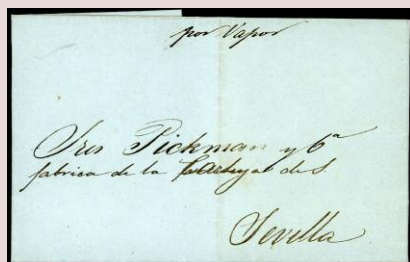 por Vapor
Sres Pickman y Cª
fabrica de la Cartuja de S.
Sevilla